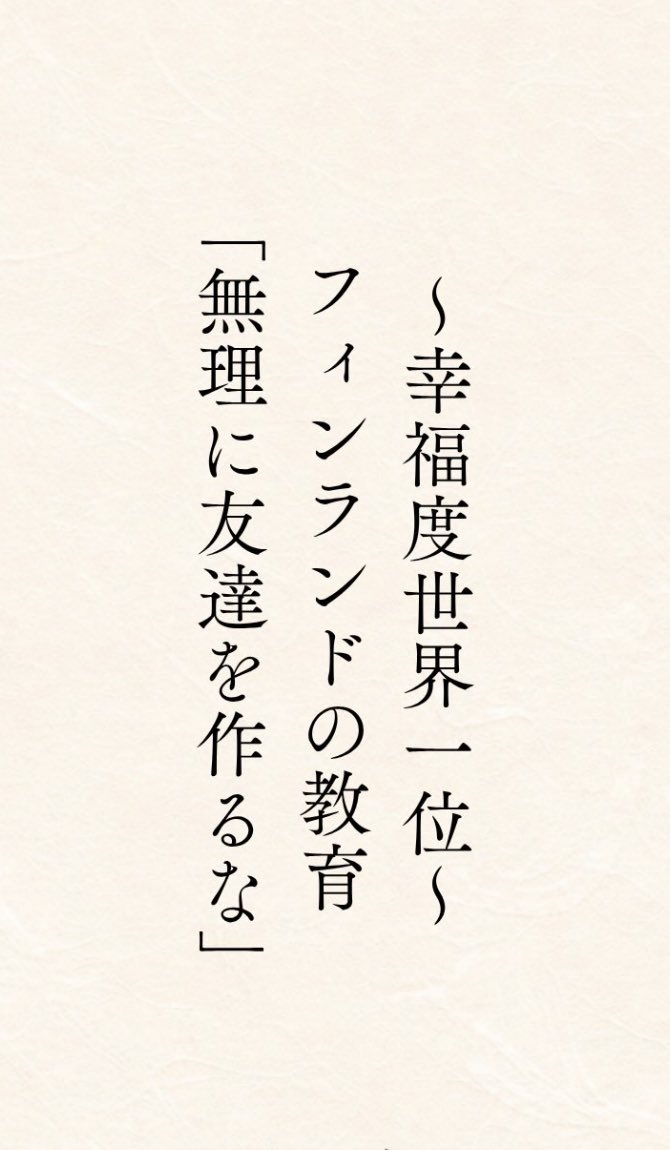 〜幸福度世界一位〜
フィンランドの教育
「無理に友達を作るな」